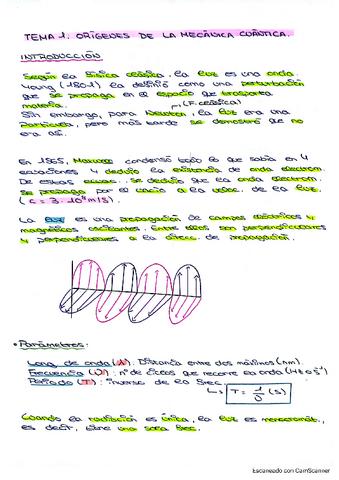 TEMA 1. ORÍGENES DE LA MECÁNICA CUÁNTICA.
INTRODUCCIÓN
Según la física clásica, la luz es una onda.
Young (1801) la definió como una perturbación
que se propaga en el espacio que trasporta
materia. (F. clásica)
Sin embargo, para Newton, la luz era una
partícula, pero más tarde se demostró que no
era así.
En 1865, Maxwell condensó todo lo que sabía en 4
ecuaciones y dedujo la existencia de onda electrom.
De estas ecuac. se dedujo que la onda electrom.
se propaga por el vacío a la veloc. de la luz.
(c = 3·10⁸ m/s).
La luz es una propagación de campos eléctricos y
magnéticos oscilantes. Entre ellos son perpendiculares
y perpendiculares a la direc. de propagación.
• Parámetros:
Long. de onda (λ): Distancia entre dos máximos (nm).
Frecuencia (ν): nº de ciclos que recorre la onda (Hz o s⁻¹)
Periodo (T): inverso de la frec.
T = 1/ν (s)
Cuando la radiación es única, la luz es monocromát.,
es decir, tiene una sola frec.
Escaneado con CamScanner